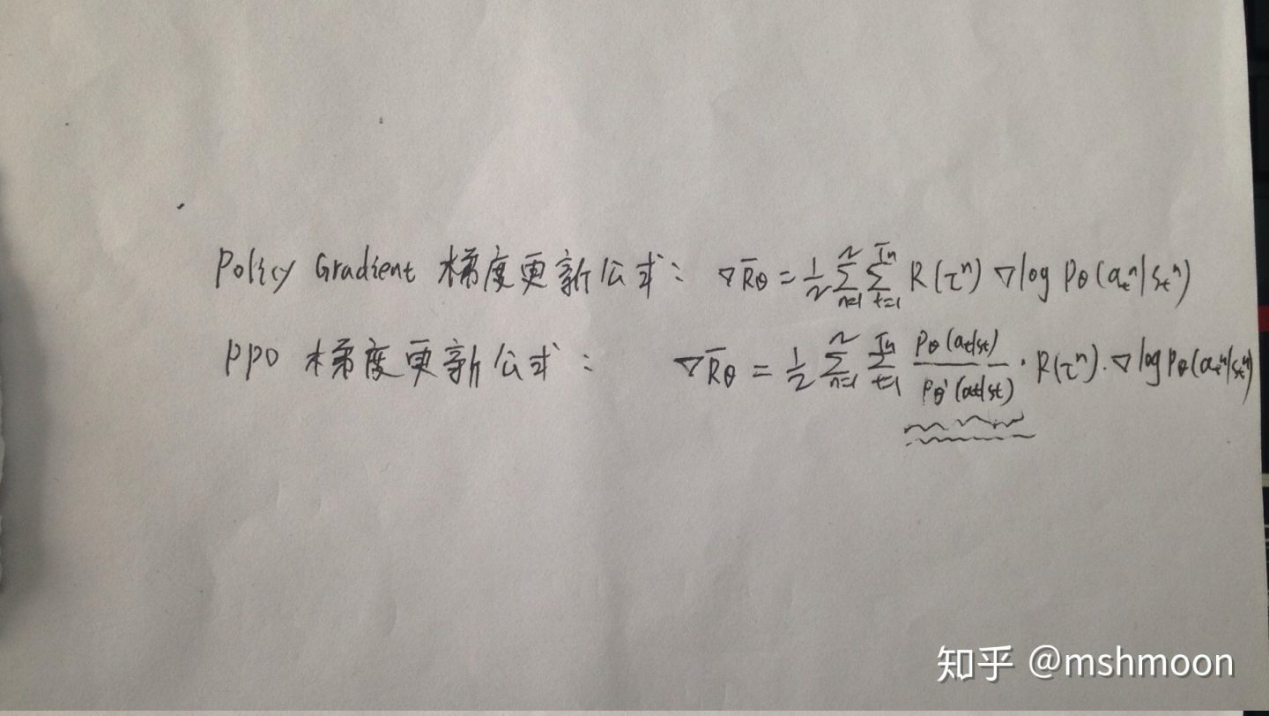 Policy Gradient 梯度更新公式: ∇R̄θ = 1/N ∑_{n=1}^{N} ∑_{t=1}^{Tn} R(τⁿ) ∇log Pθ(aₜⁿ|sₜⁿ)
PPO 梯度更新公式: ∇R̄θ = 1/N ∑_{n=1}^{N} ∑_{t=1}^{Tn} Pθ(at|st)/Pθ'(at|st) · R(τⁿ) · ∇log Pθ(aₜⁿ|sₜⁿ)
知乎 @mshmoon